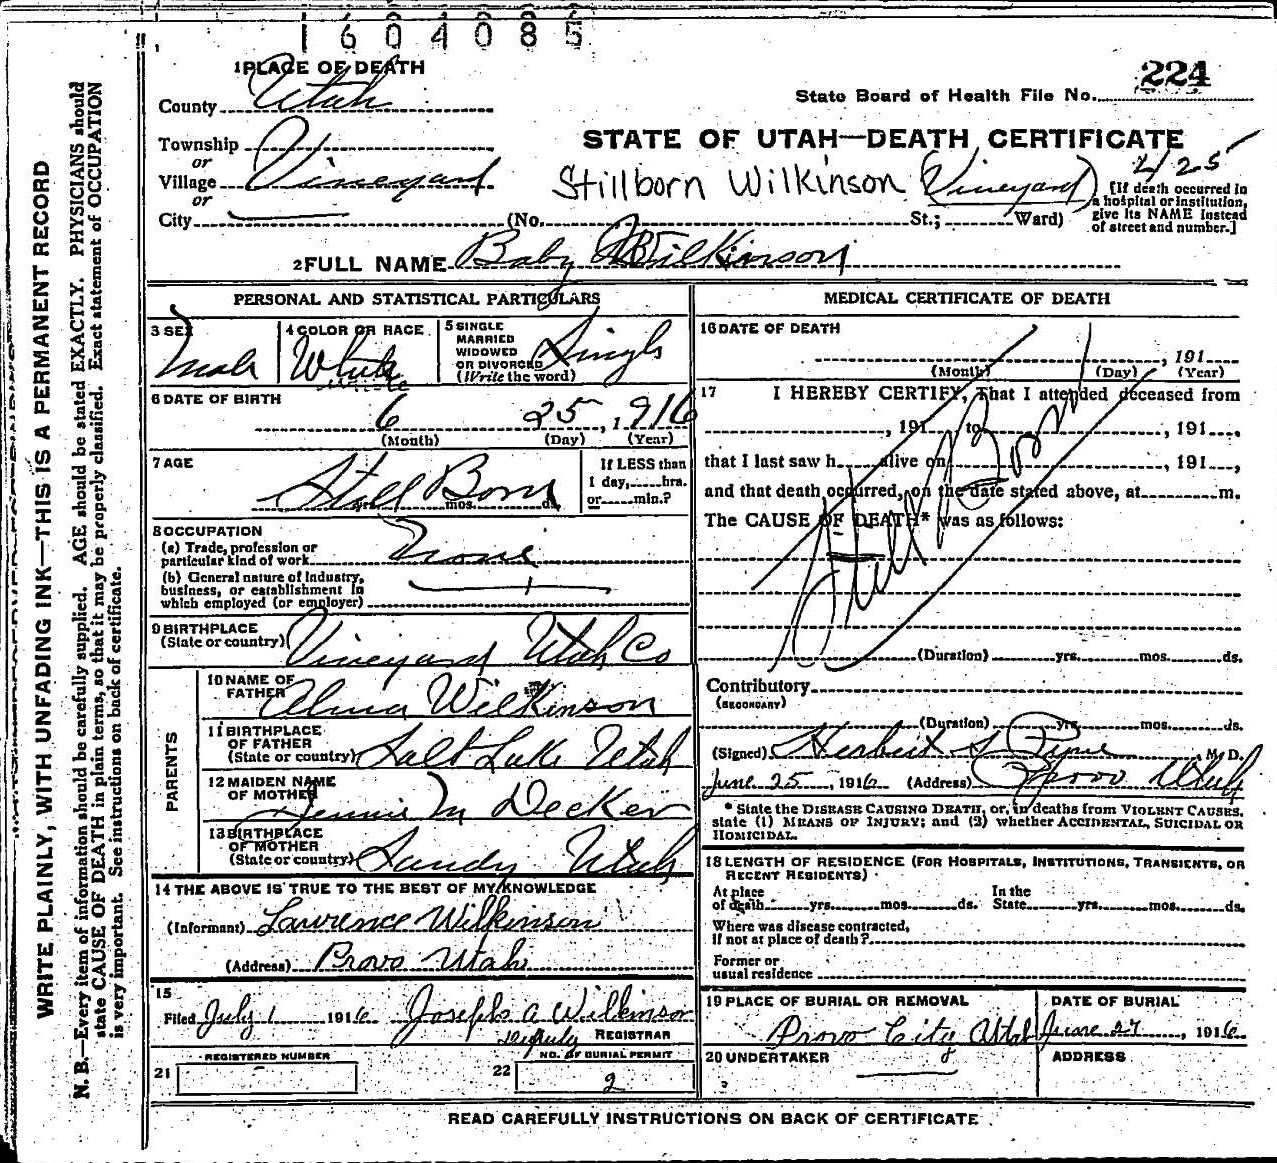 1604085
1 PLACE OF DEATH
224
County Utah
State Board of Health File No.
Township
STATE OF UTAH—DEATH CERTIFICATE
or
Village Vineyard
Stillborn Wilkinson (Vineyard) 425
or
City (No. St.; Ward)
[If death occurred in
a hospital or institution,
give its NAME instead
of street and number.]
2 FULL NAME Baby Wilkinson
PERSONAL AND STATISTICAL PARTICULARS
3 SEX
Male
4 COLOR OR RACE
White
White
5 SINGLE
MARRIED
WIDOWED
OR DIVORCED
(Write the word)
Single
6 DATE OF BIRTH
6 25, 1916
(Month) (Day) (Year)
7 AGE
Still Born
yrs. mos. ds.
If LESS than
1 day, hrs.
or min.?
8 OCCUPATION
(a) Trade, profession or
particular kind of work None
(b) General nature of industry,
business, or establishment in
which employed (or employer)
9 BIRTHPLACE
(State or country) Vineyard Utah Co
PARENTS
10 NAME OF
FATHER Alma Wilkinson
11 BIRTHPLACE
OF FATHER
(State or country) Salt Lake Utah
12 MAIDEN NAME
OF MOTHER Jennie M Decker
13 BIRTHPLACE
OF MOTHER
(State or country) Sandy Utah
14 THE ABOVE IS TRUE TO THE BEST OF MY KNOWLEDGE
(Informant) Lawrence Wilkinson
(Address) Provo Utah
15
Filed July 1 1916 Joseph A Wilkinson
Deputy REGISTRAR
REGISTERED NUMBER
21
NO. OF BURIAL PERMIT
22 2
MEDICAL CERTIFICATE OF DEATH
16 DATE OF DEATH
, 191
(Month) (Day) (Year)
17 I HEREBY CERTIFY, That I attended deceased from
, 191 to , 191 ,
that I last saw h alive on , 191 ,
and that death occurred, on the date stated above, at m.
The CAUSE OF DEATH* was as follows:
Still Born
(Duration) yrs. mos. ds.
Contributory
(SECONDARY)
(Duration) yrs. mos. ds.
(Signed) Herbert S Pyne, M.D.
June 25, 1916 (Address) Provo Utah
* State the DISEASE CAUSING DEATH, or, in deaths from VIOLENT CAUSES,
state (1) MEANS OF INJURY; and (2) whether ACCIDENTAL, SUICIDAL OR
HOMICIDAL.
18 LENGTH OF RESIDENCE (FOR HOSPITALS, INSTITUTIONS, TRANSIENTS, OR
RECENT RESIDENTS)
At place
of death yrs. mos. ds.
In the
State yrs. mos. ds.
Where was disease contracted,
if not at place of death?
Former or
usual residence
19 PLACE OF BURIAL OR REMOVAL
Provo City Utah
DATE OF BURIAL
June 27, 1916
20 UNDERTAKER
ADDRESS
READ CAREFULLY INSTRUCTIONS ON BACK OF CERTIFICATE
WRITE PLAINLY, WITH UNFADING INK—THIS IS A PERMANENT RECORD
N. B.—Every item of information should be carefully supplied. AGE should be stated EXACTLY. PHYSICIANS should
state CAUSE OF DEATH in plain terms, so that it may be properly classified. Exact statement of OCCUPATION
is very important. See instructions on back of certificate.